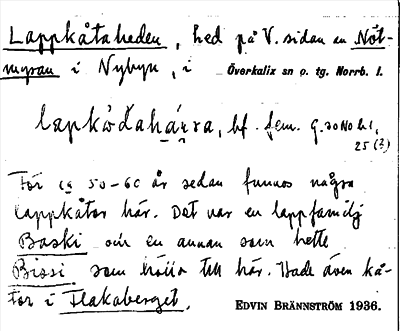 Lappkåtaheden, hed på V. sidan en Nöt-
myran i Nybyn, i Överkalix sn o. tg. Norrb. l.
bf. fem. G. 30 No b 1,
25 (?)
För ca 50-60 år sedan funnos några
lappkåtor här. Det var en lappfamilj
Baski och en annan som hette
Bissi som höllo till här. Hade även kå-
tor i Flakaberget.
EDVIN BRÄNNSTRÖM 1936.